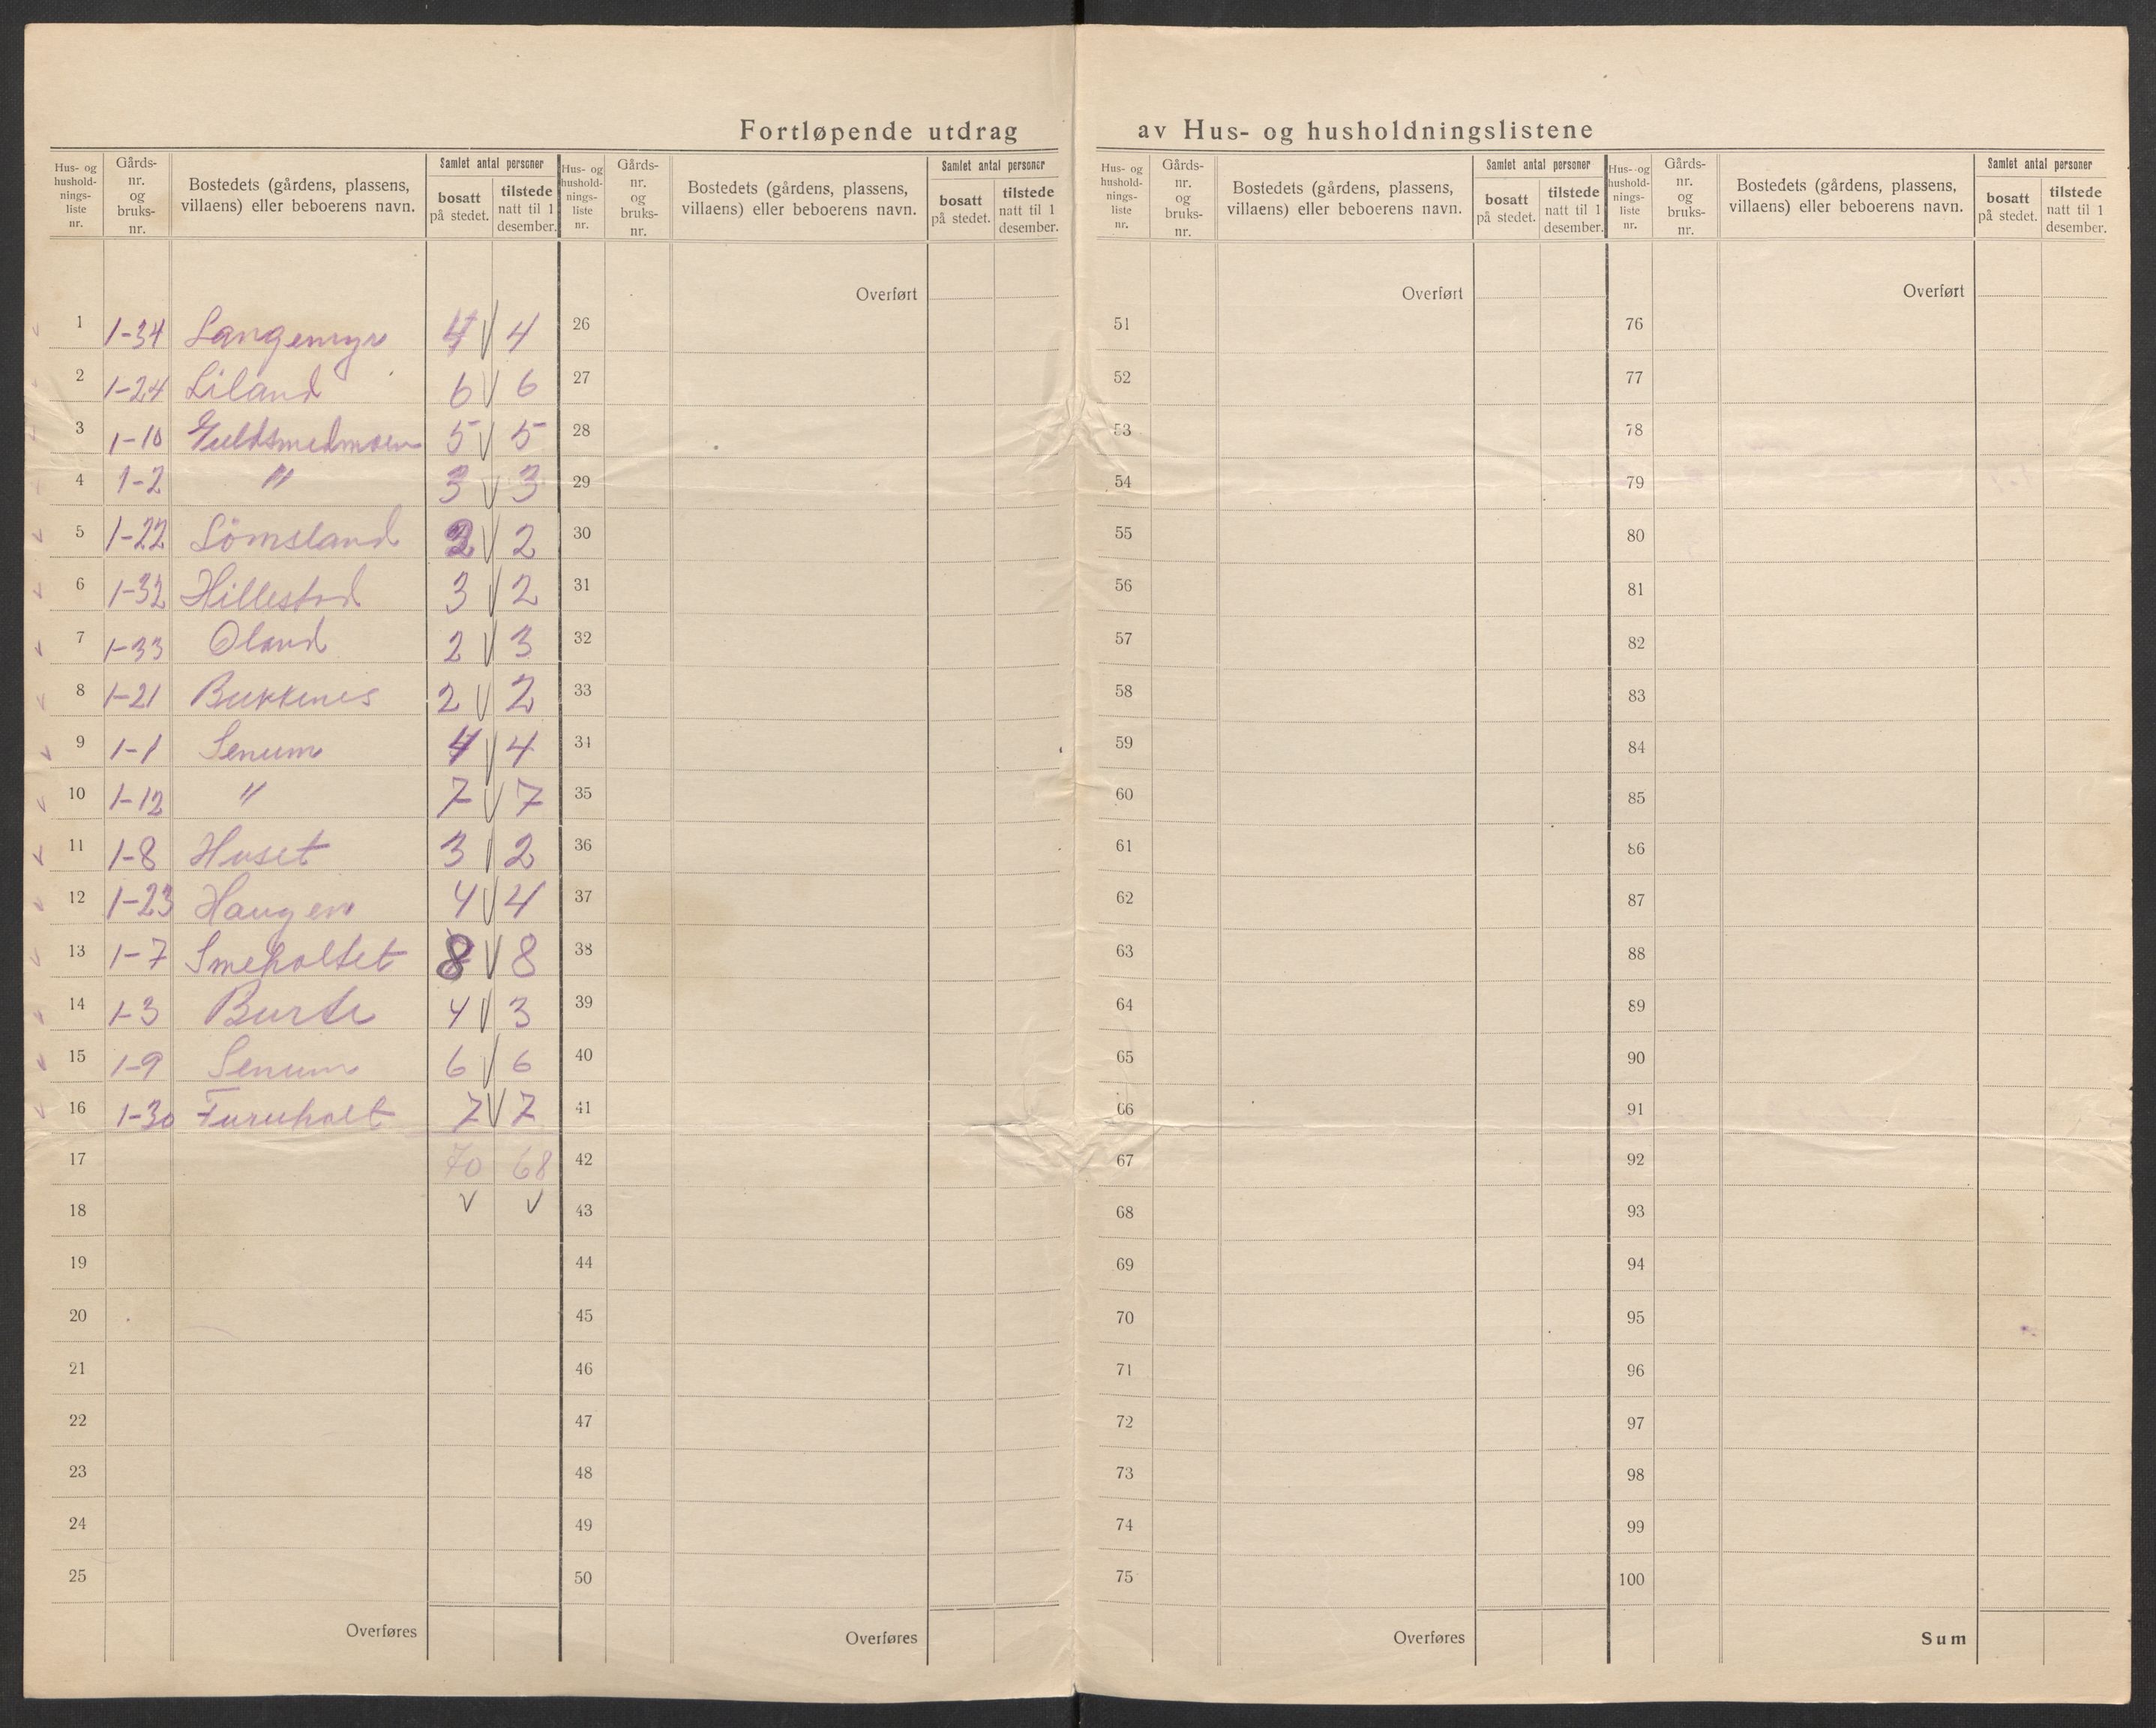 Fortløpende utdrag av Hus- og husholdningslistene
Hus- og hushold-nings-liste nr. | Gårds-nr. og bruks-nr. | Bostedets (gårdens, plassens, villaens) eller beboerens navn. | Samlet antal personer | bosatt på stedet. | tilstede natt til 1 desember.
1 1-34 Langemyr 4 V 4
2 1-24 Liland 6 V 6
3 1-10 Guldsmedmoen 5 V 5
4 1-2 " 3 V 3
5 1-22 Lömsland 2 V 2
6 1-32 Hillestad 3 V 2
7 1-33 Oland 2 V 3
8 1-21 Bukkenes 2 V 2
9 1-1 Senum 4 V 4
10 1-12 " 7 V 7
11 1-8 Huset 3 V 2
12 1-23 Haugen 4 V 4
13 1-7 Smeholtet 8 V 8
14 1-3 4 V 3
15 1-9 Senum 6 V 6
16 1-30 Furuholt 7 V 7
17 70 68
18 V V
19
20
21
22
23
24
25
Overføres
Hus- og hushold-nings-liste nr. | Gårds-nr. og bruks-nr. | Bostedets (gårdens, plassens, villaens) eller beboerens navn. | Samlet antal personer | bosatt på stedet. | tilstede natt til 1 desember.
Overført
26
27
28
29
30
31
32
33
34
35
36
37
38
39
40
41
42
43
44
45
46
47
48
49
50
Overføres
Hus- og hushold-nings-liste nr. | Gårds-nr. og bruks-nr. | Bostedets (gårdens, plassens, villaens) eller beboerens navn. | Samlet antal personer | bosatt på stedet. | tilstede natt til 1 desember.
Overført
51
52
53
54
55
56
57
58
59
60
61
62
63
64
65
66
67
68
69
70
71
72
73
74
75
Overføres
Hus- og hushold-nings-liste nr. | Gårds-nr. og bruks-nr. | Bostedets (gårdens, plassens, villaens) eller beboerens navn. | Samlet antal personer | bosatt på stedet. | tilstede natt til 1 desember.
Overført
76
77
78
79
80
81
82
83
84
85
86
87
88
89
90
91
92
93
94
95
96
97
98
99
100
Sum